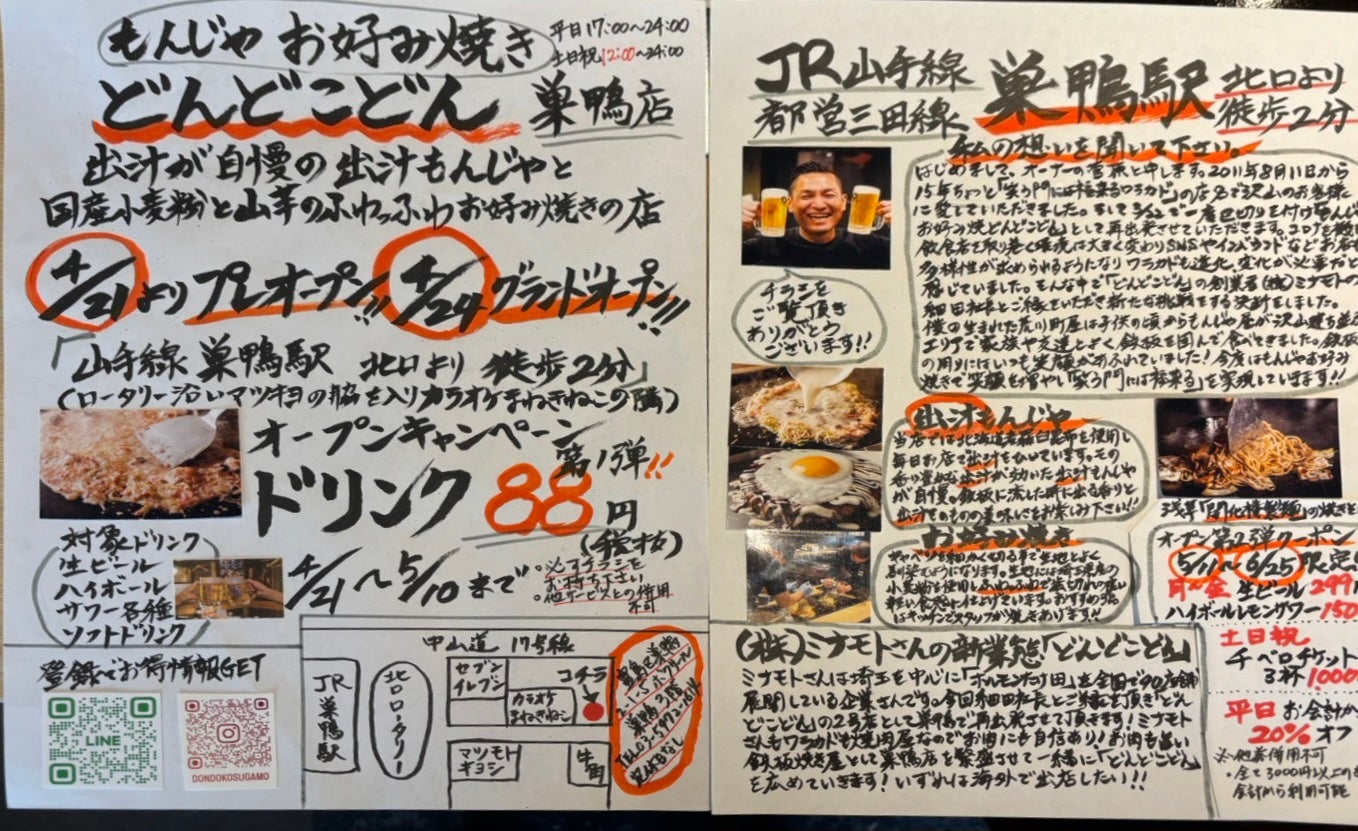 もんじゃ お好み焼き
平日17:00~24:00
土日祝12:00~24:00
どんどこどん 巣鴨店
出汁が自慢の出汁もんじゃと
国産小麦粉と山芋のふわっふわお好み焼きの店
4/21よりプレオープン!! 4/24グランドオープン!!!
「山手線 巣鴨駅 北口より 徒歩2分」
(ロータリー沿いマツキヨの脇を入りカラオケまねきねこの隣)
オープンキャンペーン
第1弾!!
ドリンク 88円
(税抜)
4/21~5/10まで
・必ずチラシを
お持ち下さい
・他サービスとの併用
不可
対象ドリンク
生ビール
ハイボール
サワー各種
ソフトドリンク
登録でお得情報GET
LINE
DONDOKOSUGAMO
中山道 17号線
JR巣鴨駅
北口ロータリー
セブンイレブン
カラオケまねきねこ
コチラ
マツモトキヨシ
牛角
豊島区巣鴨
巣鴨 3階
JR山手線
都営三田線
巣鴨駅
北口より
徒歩2分
私の想いを聞いて下さい。
はじめまして。オーナーの菅原と申します。2011年8月11日から
15年ちょっと「笑う門には福来るワラカド」の店名で沢山のお客様に
に愛していただきました。そして3/22で一度区切りを付け
お好み焼どんどこどん」として再出発させていただきます。コロナを
飲食店を取り巻く環境は大きく変わりSNSやインバウンドなどお客
多様性が求められるようになりワラカドも進化、変化が必要だと
感じていました。そんな中で「どんどこどん」の創業者(株)ミナモトの
和田社長とご縁をいただき新たな挑戦をする決断をしました。
僕の生まれた荒川町屋は子供の頃からもんじゃ屋が沢山建ち並ぶ
エリアで家族や友達とよく鉄板を囲んで食べてきました。鉄板
の周りにはいつも笑顔があふれていました!今度はもんじゃお好み
焼きで笑顔を増やし「笑う門には福来る」を実現していきます!!
チラシを
ご覧頂き
ありがとう
ございます!!
出汁もんじゃ
当店では北海道産真昆布を使用し
毎日お店で出汁をひいています。その
香り豊かな出汁が効いた出汁もんじゃ
が自慢。鉄板に流した時に出る香りと
出汁そのものの美味しさをお楽しみ下さい!!
浅草「開化楼製麺」の焼きそ
お好み焼き
キャベツを細かく切る事で生地とよく
馴染むようになります。生地には埼玉県産の
小麦粉を使用しふわふわで歯切れの良い
軽い食感に仕上げています。おすすめ3品
はキッチンでスタッフが焼きあげます!!
オープン第2弾クーポン
5/11~6/25限定!
月~金 生ビール 299
ハイボールレモンサワー 150
土日祝
チベロチケット
3杯1000
平日 お会計か
20%オフ
※他券併用不可
・全て3000円以上の
会計から利用可能
(株)ミナモトさんの新業態「どんどこどん」
ミナモトさんは埼玉を中心に「ホルモンたけ田」を全国で90店舗
展開している企業さんです。今回和田社長とご縁を頂き「どん
どこどん」の2号店として巣鴨で再出発させて頂きます!ミナモト
さんもワラカドも焼肉屋なのでお肉にも自信あり!お肉も旨い
鉄板焼き屋として巣鴨店を繁盛させて一緒に「どんどこどん」
を広めていきます!いずれは海外で出店したい!!!